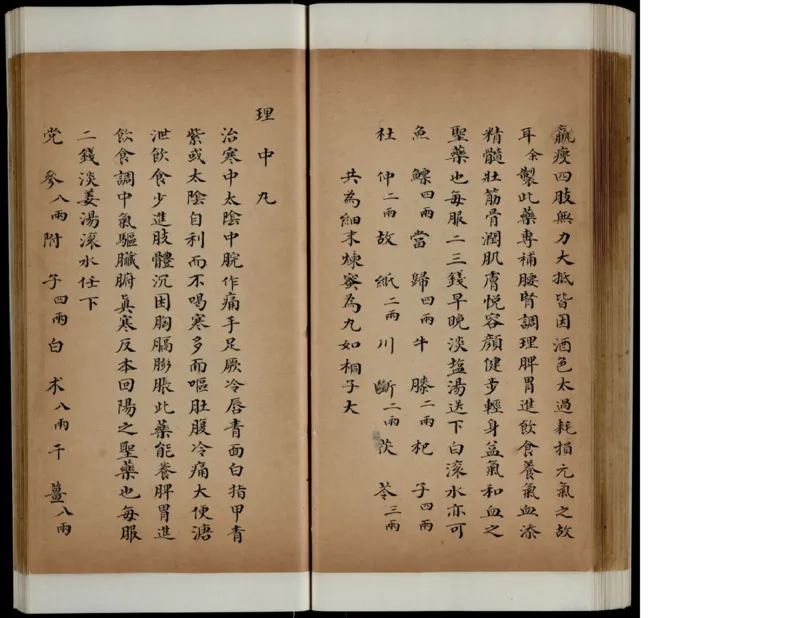 羸瘦四肢無力大抵皆因酒色太過耗損元氣之故
耳余製此藥專補腰腎調理脾胃進飲食養氣血添
精髓壯筋骨潤肌膚悅容顏健步輕身益氣和血之
聖藥也每服二三錢早晚淡盐湯送下白滾水亦可
魚鰾四兩當歸四兩牛膝二兩杞子四兩
杜仲二兩故紙二兩川斷二兩茯苓三兩
共為細末煉蜜為丸如桐子大
理中丸
治寒中太陰中脘作痛手足厥冷唇青面白指甲青
紫或太陰自利而不喝寒多而嘔肚腹冷痛大便溏
泄飲食少進肢體沉困胸膈膨脹此藥能養脾胃進
飲食調中氣驅臟腑真寒反本回陽之聖藥也每服
二錢淡姜湯滾水任下
党參八兩附子四兩白朮八兩干薑八兩